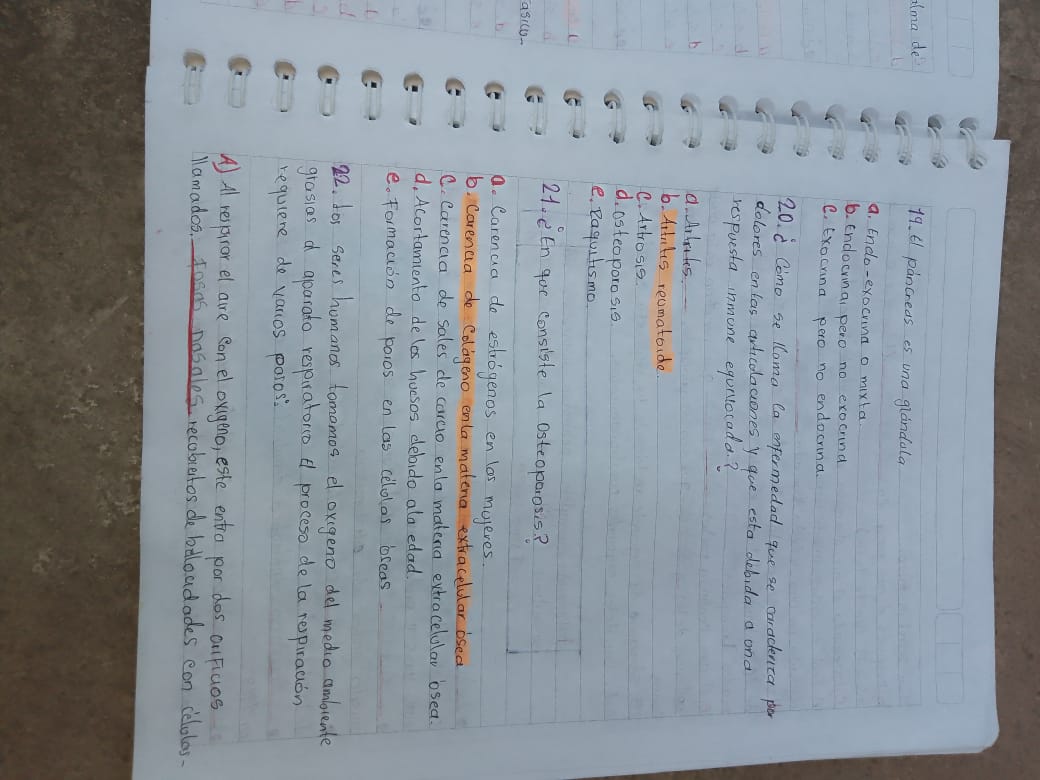 19. El páncreas es una glándula
a. Endo-exocrina o mixta
b. Endocrina, pero no exocrina
c. Exocrina pero no endocrina.
20. ¿Cómo se llama la enfermedad que se caracteriza por
dolores en las articulaciones y que esta debida a una
respuesta inmune equivocada?
a. Artritis.
b. Artritis reumatoide.
c. Artrosis.
d. osteoporosis.
e. Raquitismo.
21. ¿En que consiste la Osteoporosis?
a. Carencia de estrógenos en las mujeres.
b. Carencia de Colágeno en la materia extracelular ósea
c. Carencia de sales de calcio en la materia extracelular ósea.
d. Acortamiento de los huesos debido a la edad.
e. Formación de poros en las células óseas
22. Los seres humanos tomamos el oxigeno del medio ambiente
grasias al aparato respiratorio el proceso de la respiración
requiere de varios pasos:
A) Al respirar el aire con el oxigeno, este entra por dos orificios
llamados. fosas nasales, recobiertos de bellocidades con células-
alma de
asico-